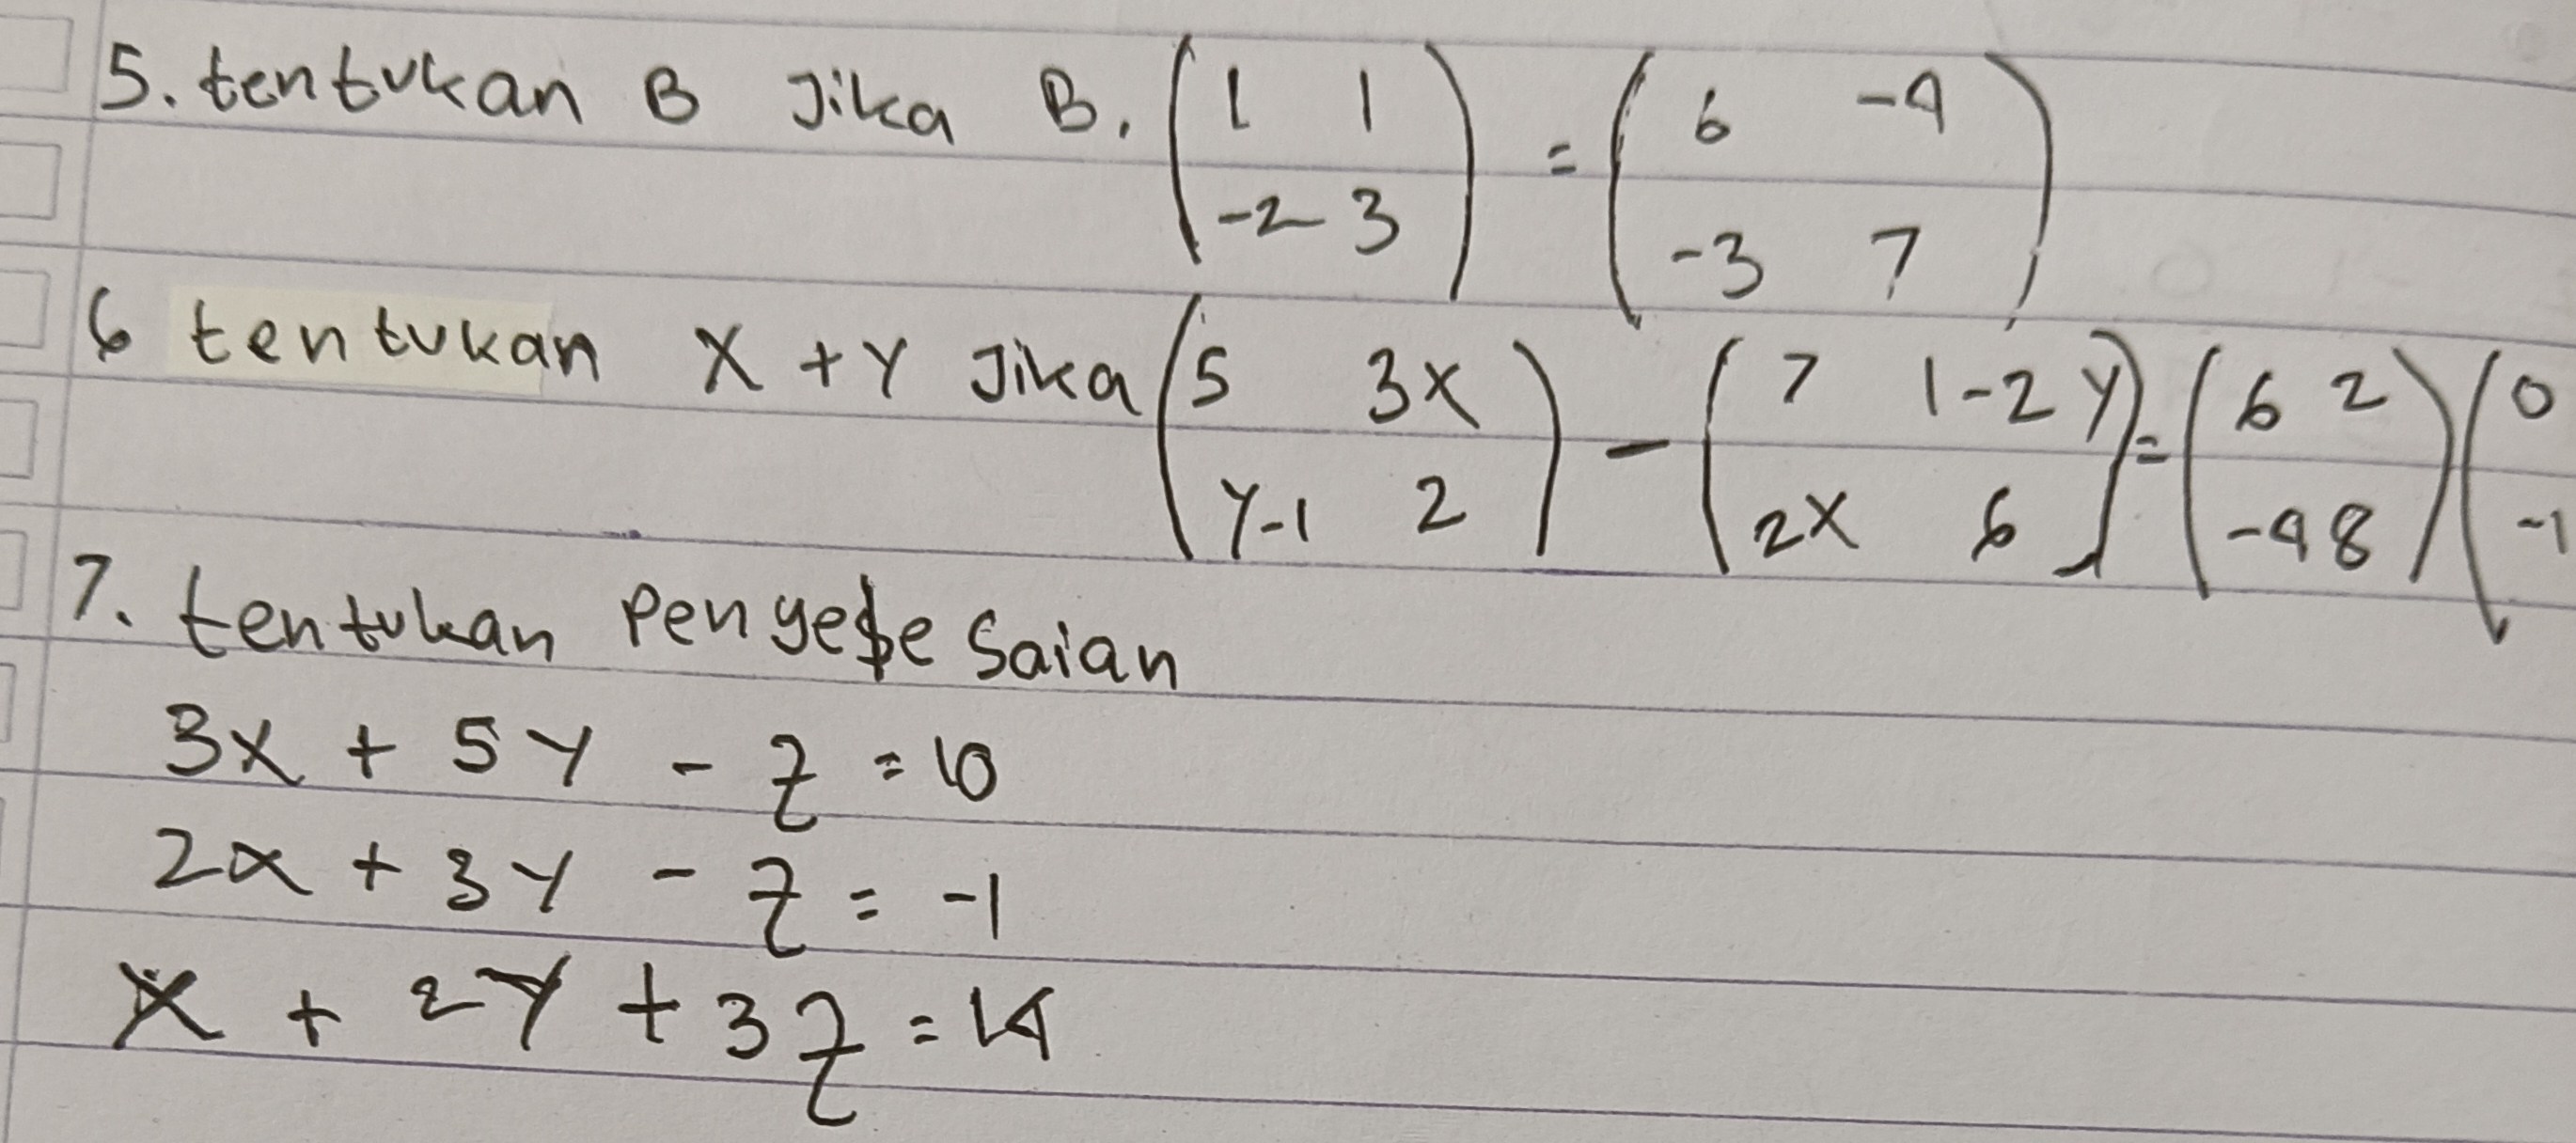 5. tentukan B Jika B. (1 1 = (6 -4
-2 3) -3 7)
6 tentukan X + Y Jika (5 3X) - (7 1-2Y) = (6 2) (0
Y-1 2 2X 6 -4 8 -1
7. tentukan Penyelesaian
3X + 5Y - z = 10
2x + 3Y - z = -1
X + 2Y + 3z = 14